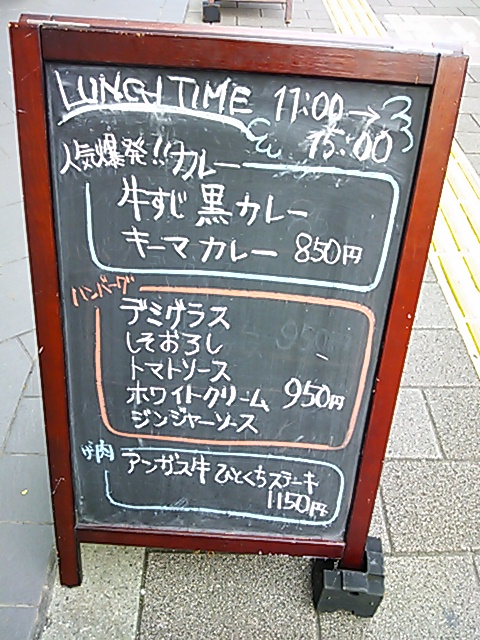 LUNCH TIME 11:00→
15:00
人気爆発!! カレー
牛すじ黒カレー
キーマカレー 850円
ハンバーグ
デミグラス
しそおろし
トマトソース
ホワイトクリーム 950円
ジンジャーソース
肉 アンガス牛ひとくちステーキ
1150円